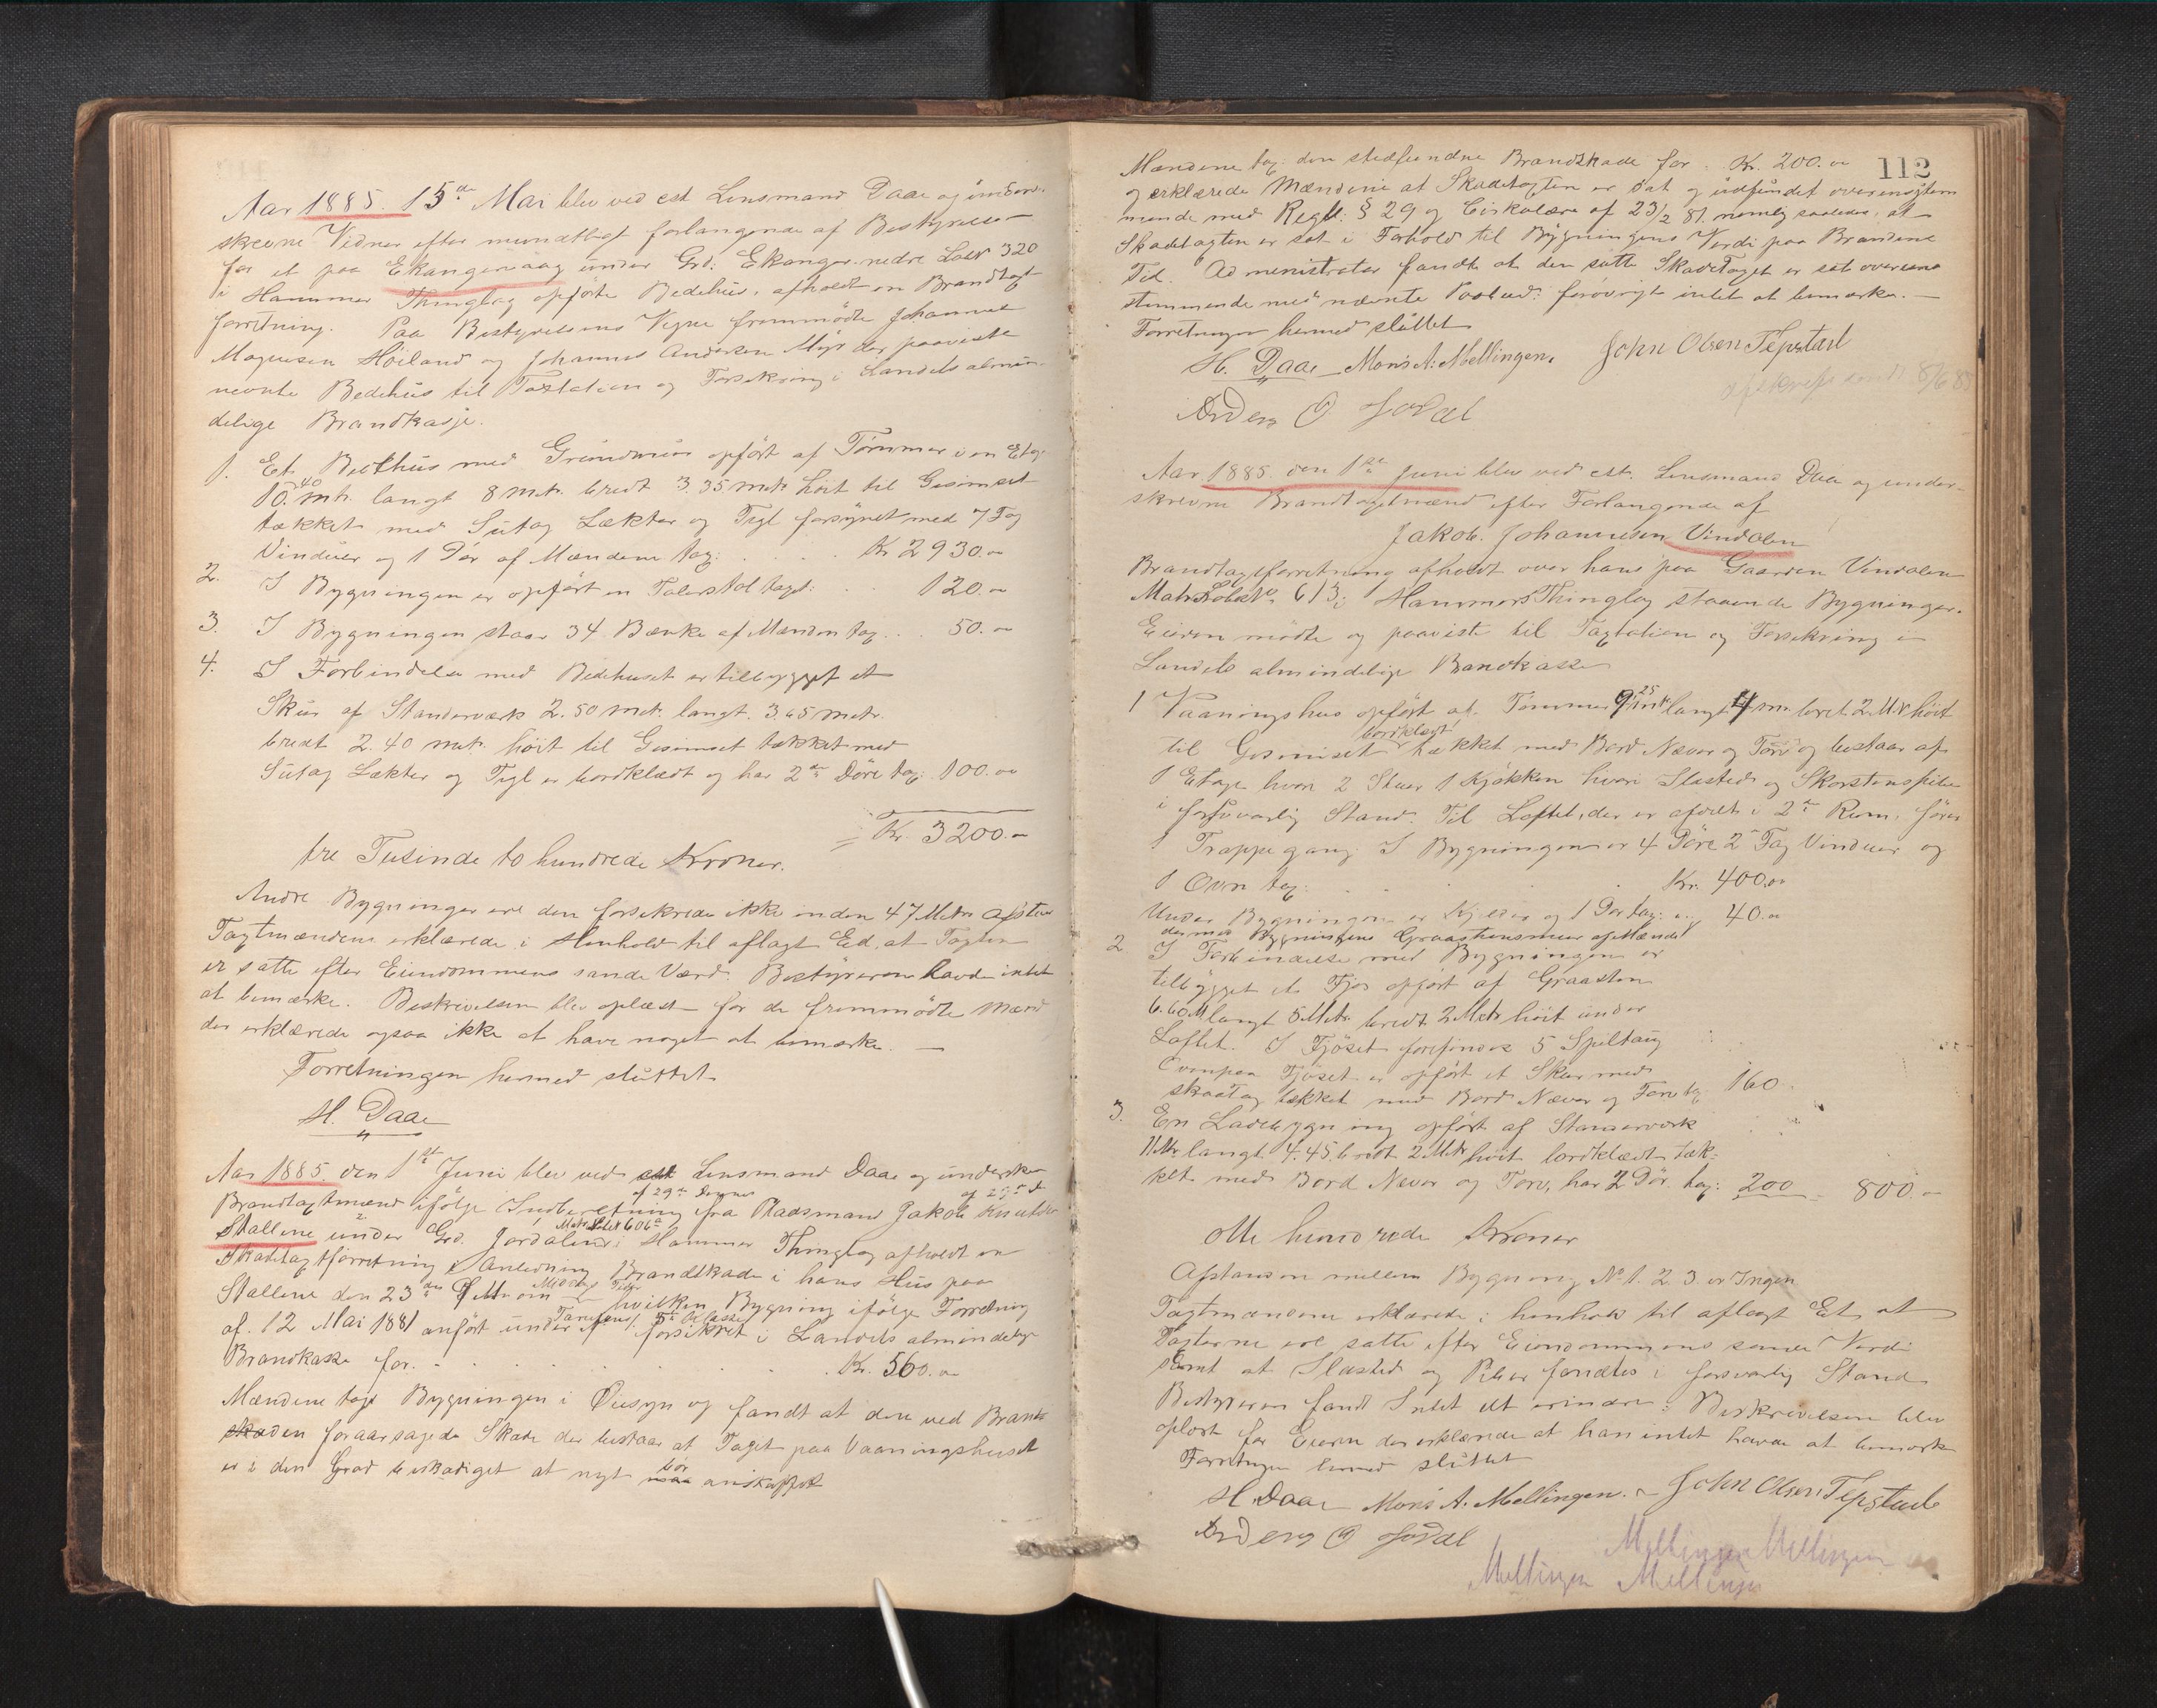 Aar 1885. 15de Mai blev ved cst Lensmand Daae og under-
skrevne Vidner efter mundtligt forlangende af Bestyrelse
for et paa Ekangervaag under Grd: Ekanger nedre Løbr 320
i Hammer Thinglag opførte Bedehus, afholdt en Brandtaxt
forretning. Paa Bestyrelsens Vegne fremmødte Johannes
Magnesen Höiland og Johannes Andersen Myr der paaviste
nevnte Bedehus til Taxtation og Forsikring i Landets almin-
delige Brandkasse.
1. Et Bedehus med Grundmur opført af Tømmer i en Etage
10.40 mtr. langt 8 metr. bredt 3.35 metr høit til Gesimset
tækket med Sutag Lækter og Tegl forsynet med 7 Fag
Vinduer og 1 Dör af Mændene tax: . . . Kr 2930.00
2. I Bygningen er opført en Talerstol taxt: . . 120.00
3. I Bygningen staar 34 Bænke af Mænden tax . . 50.00
4. I Forbindelse med Bedehuset er tilbygget et
Skur af Standerværk 2.50 metr. langt. 3.65 metr.
bredt 2.40 metr. höit til Gesimset tækket med
Sutag Lækter og Tegl er bordklædt og har 2de Döre tax: 100.00
= Kr. 3200.00
tre Tusinde to hundrede Kroner.
Andre Bygninger end den forsikrede ikke inden 47 Metr Afstand
Taxtmændene erklærede i Henhold til aflagt Ed, at Taxten
er satte efter Eiendommens sande Værd. Bestyreren havde intet
at bemærke. Beskrivelsen blev oplæst for de fremmödte Mænd
der erklærede ogsaa ikke at have noget at bemærke. —
Forretningen hermed sluttet
H. Daae
Aar 1885. den 1st Juni blev ved cst Lensmand Daae og underskr
af 29de Dennes
Brandtaxtmænd ifölge Indberetning fra Pladsmand Jakob Knutsen
Matr Löbr 606a
Stallene under Grd. Jordalen i Hammer Thinglag afholdt en
Skadetaxtforretning i Anledning Brandskade i hans Hus paa
Stallene den 23de hvilken Bygning ifölge Forretning
af. 12 Mai 1881 anfört under forsikret i Landets almindelige
Brandkasse for. . . . . . . Kr. 560.00
Mændene tog Bygningen i Öiesyn og fandt at den ved Brand
skaden foraarsagede Skade der bestaar at Taget paa Vaaningshuset
er i den Grad beskadiget at nyt bör anskaffes
112
Mændene tax: den stedfundne Brandskade for Kr. 200.00
og erklærede Mændene at Skadetaxten er sat og udfundet overensstem
mende med Regl: § 29 og Cirkulære af 23/2 81. nemlig saaledes, at
Skadetaxten er sat i Forhold til Bygningens Verdi paa Brandens
Tid. Administrator fandt at den satte Skadetaxt er sat overens
stemmende med nævnte Paabud: forövrigt intet at bemærke. —
Forretningen hermed sluttet
H. Daae Mons A: Mellingen. John Olsen Tepstad
afskrift sendt 8/6 85
Anders O Jordal
Aar 1885 den 1ste Juni blev ved cst. Lensmand Daae og under-
skrevne Brandtaxtmænd efter Forlangende af
Jakob. Johannesen Vindalen
Brandtaxtforretning afholdt over hans paa Gaarden Vindalen
Matr Löbr 613 i Hammers Thinglag staaende Bygninger.
Eieren mødte og paaviste til Taxtation og Forsikring i
Landets almindelige Brandkasse
1 Vaaningshus opfört af Tømmer 9.25 mtr langt 4 m. bret 2. Mtr höit
bordklædt
til Gesimset tækket med Bord Næver og Torv og bestaar af
1 Etage hvori 2 Stuer 1 Kjökken hvori Ildsted og Skorstenspibe
i forsvarlig Stand. Til Loftet, der er afdelt i 2de Rum, förer
1 Trappegang. I Bygningen er 4 Döre 2 Fag Vinduer og
1 Ovn tax: . . . . Kr. 400.00
Under Bygningen er Kjelder og 1 Dör tax: . . 40.00
dermed Bygningens Graastensmur af Mændene
2 I Forbindelse med Bygningen er
tilbygget et Fjös opfört af Graasten
6.60 M langt 5 Metr. bredt 2 Metr höit under
Loftet. I Fjöset forefindes 5 Spiltaug
Ovenpaa Fjöset er opfört et Skur med
skraatag tækket med Bord Næver og Torv tx 160
3. En Ladebygning opfört af Standerværk
11 Mtr langt 4.45. bredt 2 Mtr höit bordklædt tæk-
ket med Bord Næver og Torv, har 2 Dör. tax: 200 = 800.—
otte hundrede Kroner
Afstanden mellem Bygning No 1. 2. 3. er Ingen
Taxtmændene erklærede i henhold til aflagt Ed at
Taxterne ere satte efter Eiendommens sande Verdi
samt at Ildsted og Piber fandtes i forsvarlig Stand
Bestyreren fandt Intet at erindre: Beskrivelsen blev
oplæst for Eieren der erklærede at han intet havde at bemærke
Forretningen hermed sluttet
H. Daae Mons A. Mellingen. — John Olsen Tepstad
Anders O Jordal
Mellingen Mellingen
Mellingen Mellingen